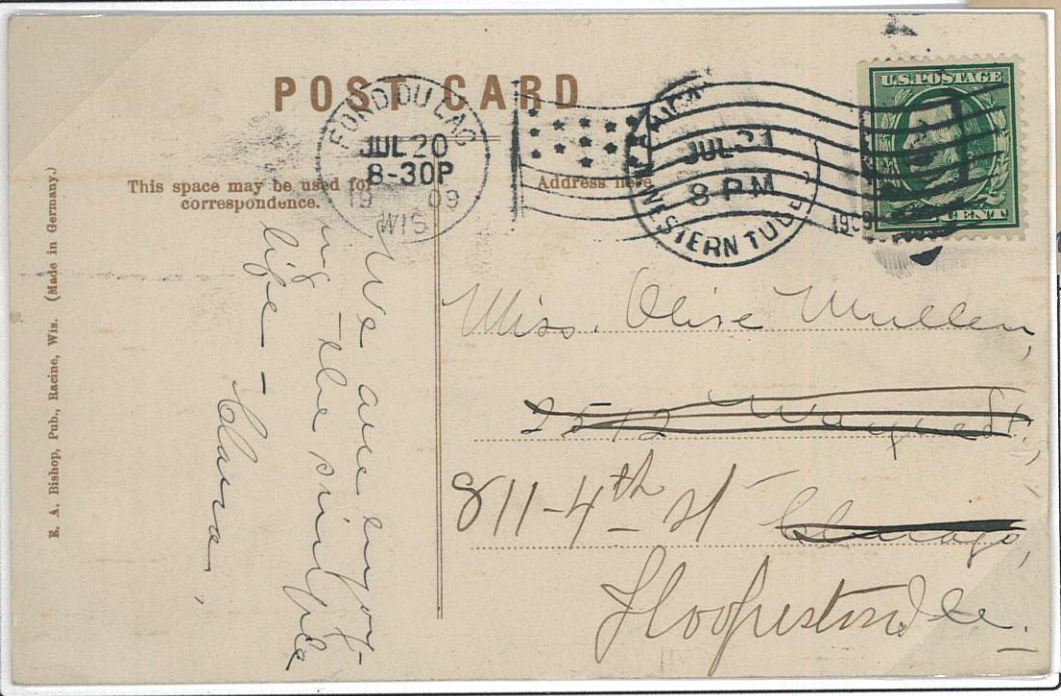 POST CARD
FOND DU LAC
JUL 20
8-30P
1909
WIS.
JUL 21
8 PM
WESTERN TUBE
1909
U.S. POSTAGE
CENT
This space may be used for
correspondence.
Address here
E. A. Bishop, Pub., Racine, Wis. (Made in Germany.)
We are enjoy-
ing the simple
life –
Clara.
Miss. Olive Mullen,
2512 St.,
811-4th St Chicago,
Hoopeston Ill.